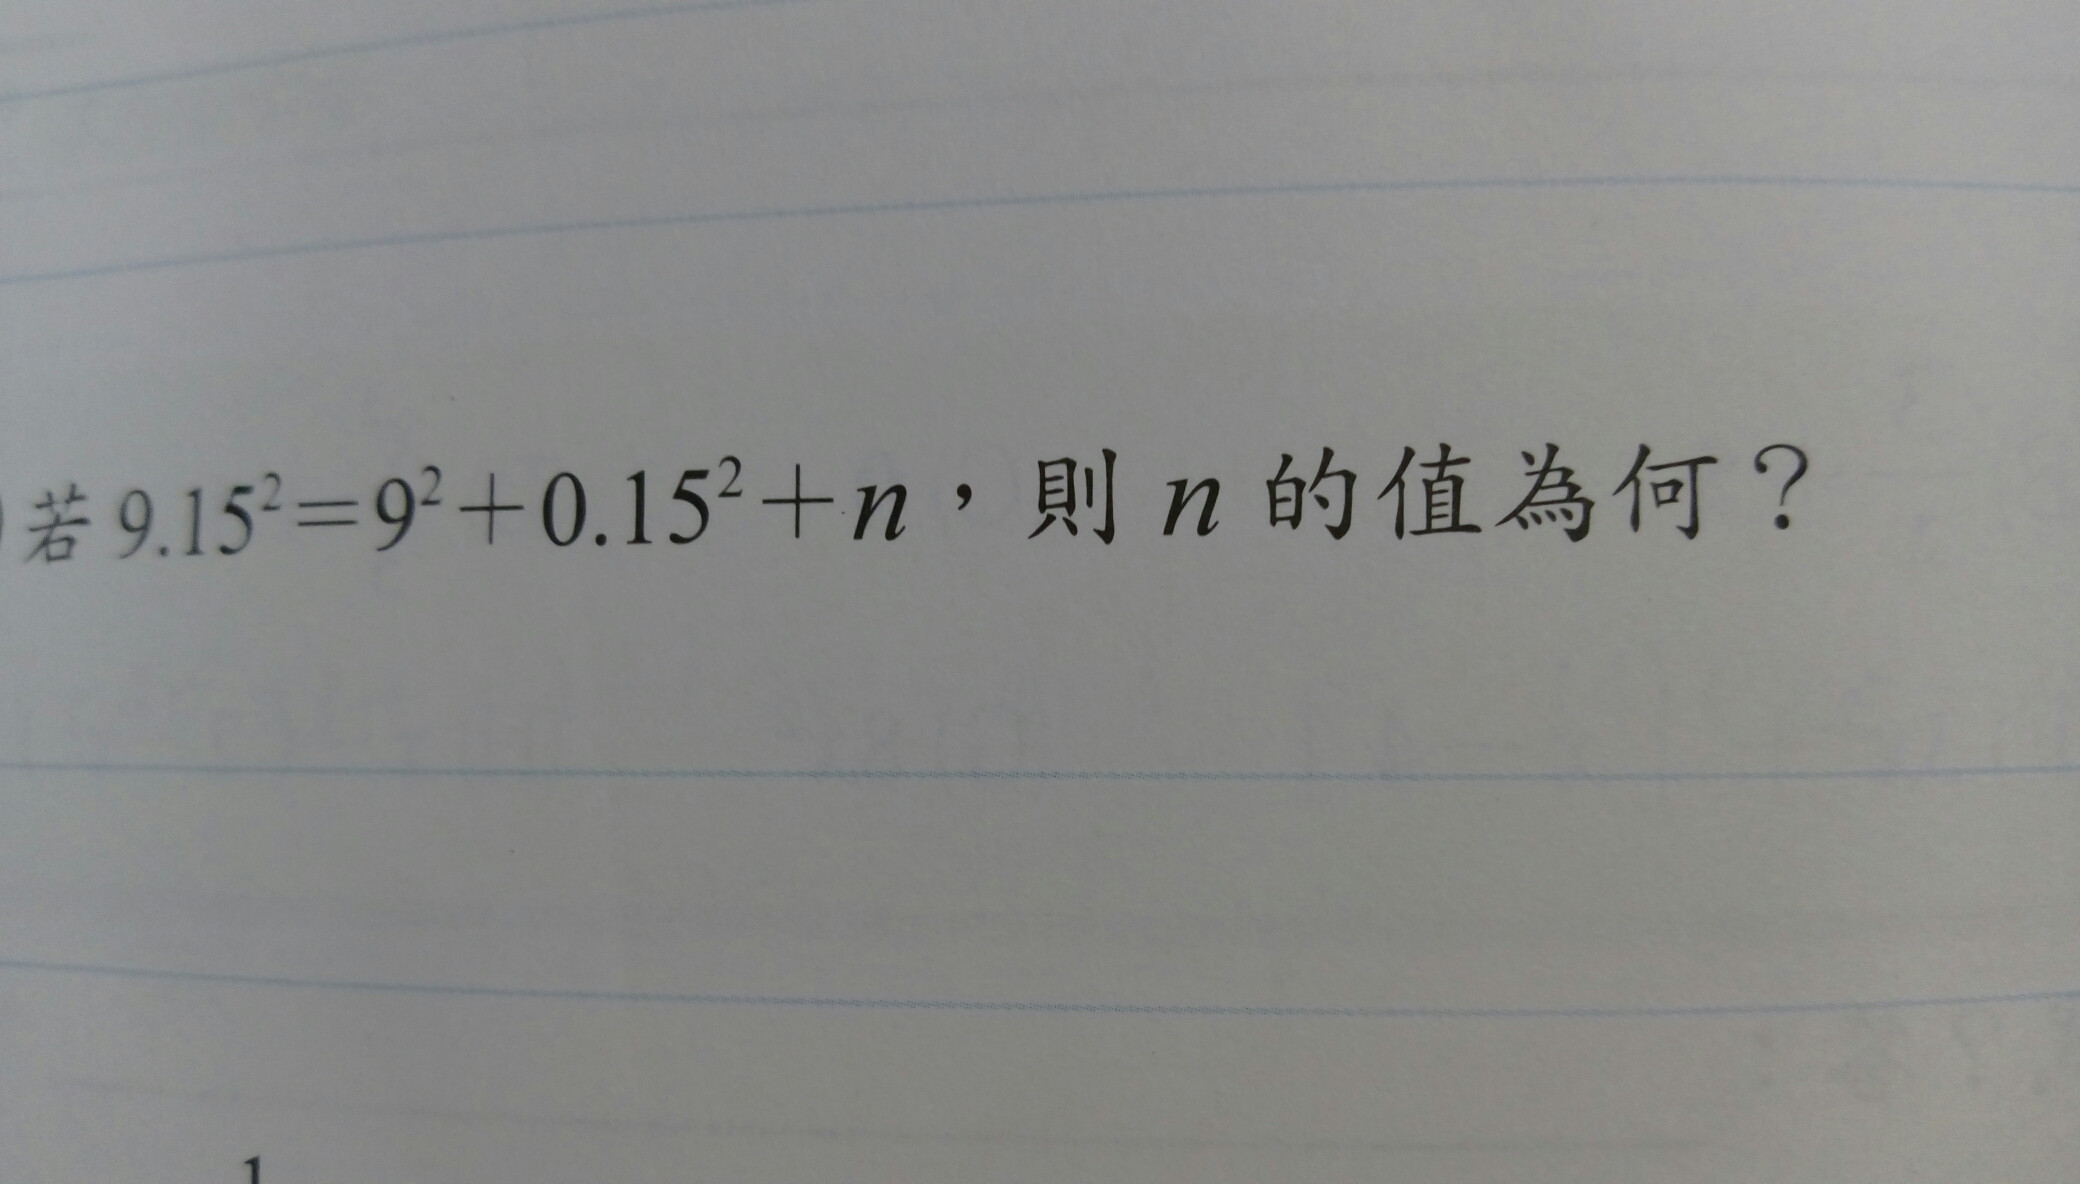 ) 若 9.15²=9²+0.15²+n，則 n 的值為何？
1